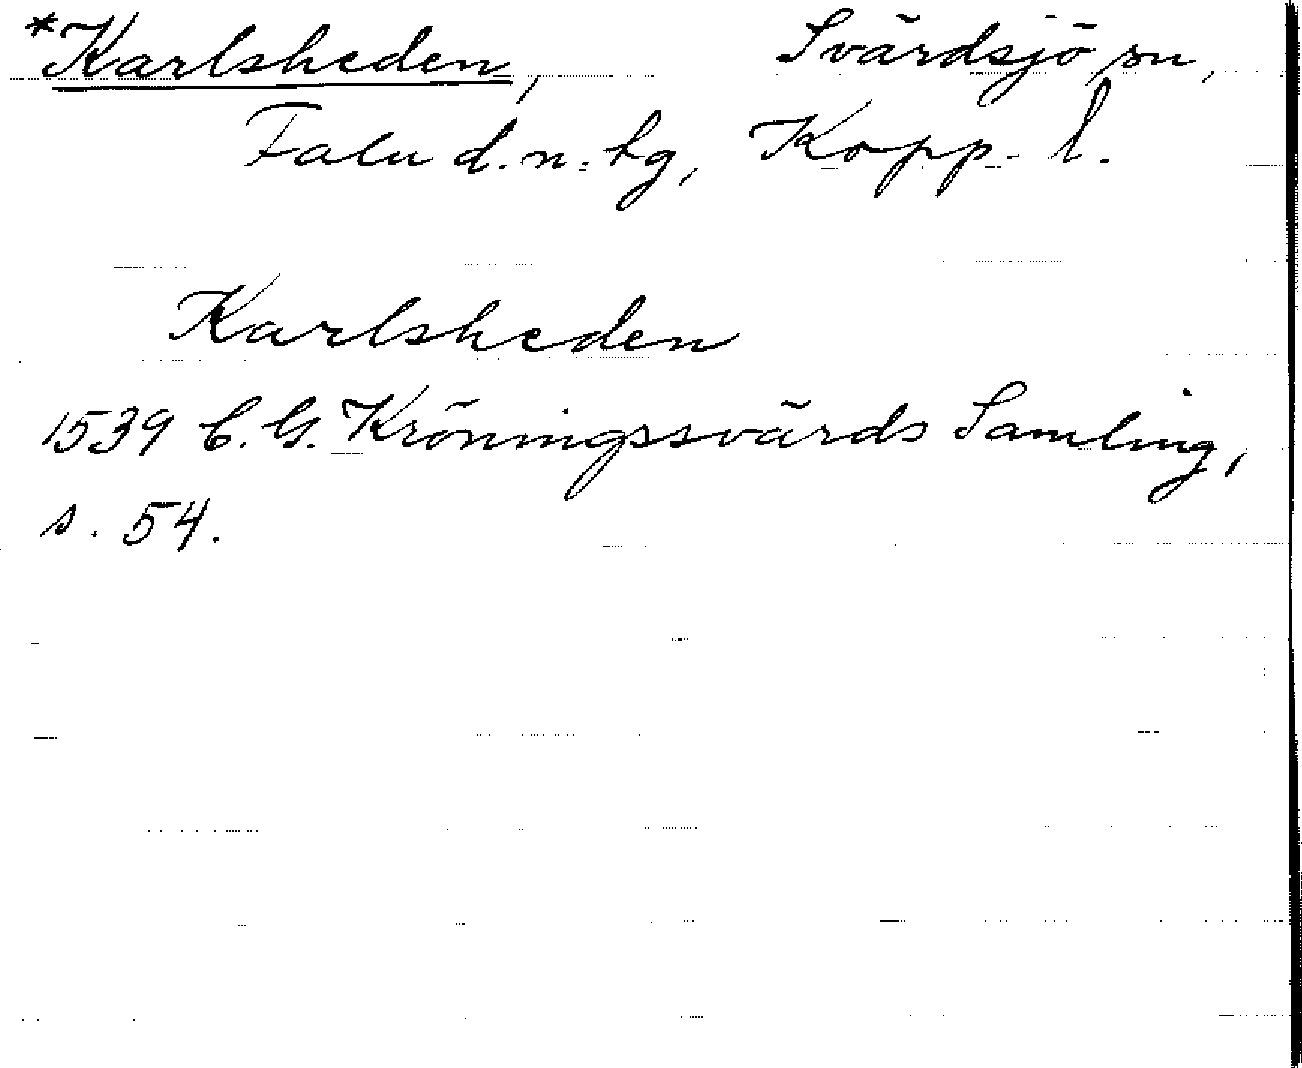 *Karlsheden, Svärdsjö sn,
Falu d.n. tg, Kopp. l.
Karlsheden
1539 C. G. Kröningssvärds Samling,
s. 54.